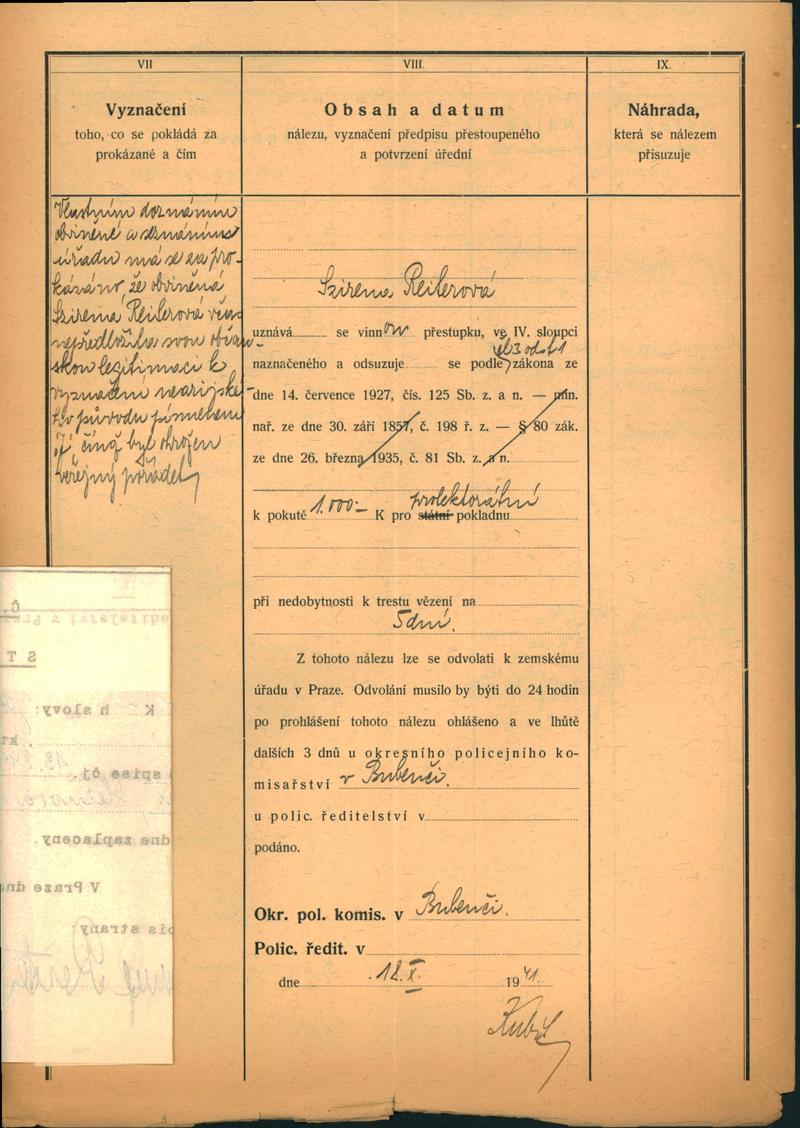 VII
VIII.
IX.
Vyznačení
toho, co se pokládá za
prokázané a čím
Obsah a datum
nálezu, vyznačení předpisu přestoupeného
a potvrzení úřední
Náhrada,
která se nálezem
přisuzuje
Vlastním doznáním
obviněné a seznáním
úřadu má se za pro-
kázáno, že obviněná
Szirena Reiterová včas
nepředložila svou občan-
skou legitimaci k
vyznačení nearijské-
ho původu písmenem
"J" čímž byl ohrožen
veřejný pořádek
Szirena Reiterová
uznává se vinnou přestupku, ve IV. sloupci
čl 3 odst 1
naznačeného a odsuzuje se podle zákona ze
dne 14. července 1927, čís. 125 Sb. z. a n. — min.
nař. ze dne 30. září 1857, č. 198 ř. z. — § 80 zák.
ze dne 26. března 1935, č. 81 Sb. z. a n.
protektorátní
k pokutě 1.000- K pro státní pokladnu
při nedobytnosti k trestu vězení na
5 dní.
Z tohoto nálezu lze se odvolati k zemskému
úřadu v Praze. Odvolání musilo by býti do 24 hodin
po prohlášení tohoto nálezu ohlášeno a ve lhůtě
dalších 3 dnů u okresního policejního ko-
misařství v Bubenči.
u polic. ředitelství v
podáno.
Okr. pol. komis. v Bubenči.
Polic. ředit. v
dne 18. X. 1941.
K h slovy:
spise čj.
dne zaplaceny.
V Praze dne
is strany